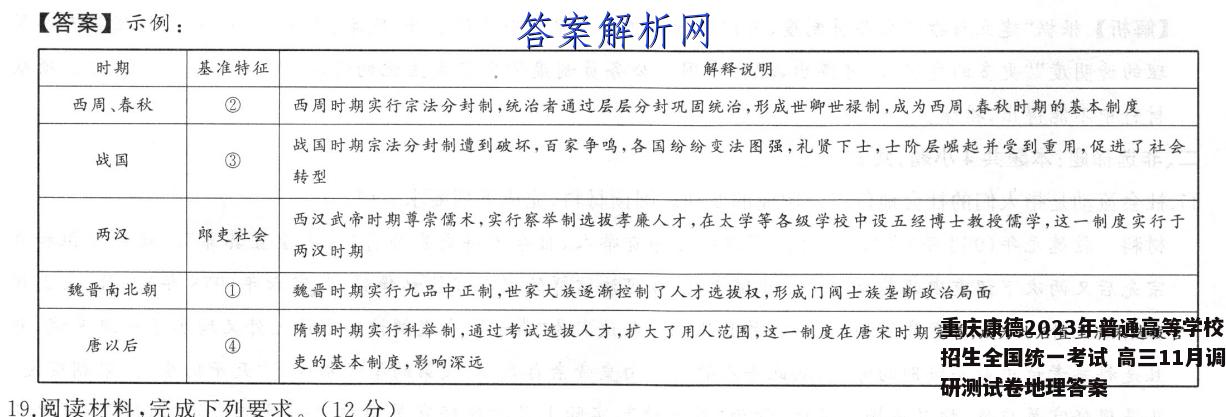 【答案】示例:
答案解析网
时期 基准特征 解释说明
西周、春秋 ② 西周时期实行宗法分封制,统治者通过层层分封巩固统治,形成世卿世禄制,成为西周、春秋时期的基本制度
战国 ③ 战国时期宗法分封制遭到破坏,百家争鸣,各国纷纷变法图强,礼贤下士,士阶层崛起并受到重用,促进了社会
转型
两汉 郎吏社会 西汉武帝时期尊崇儒术,实行察举制选拔孝廉人才,在太学等各级学校中设五经博士教授儒学,这一制度实行于
两汉时期
魏晋南北朝 ① 魏晋时期实行九品中正制,世家大族逐渐控制了人才选拔权,形成门阀士族垄断政治局面
唐以后 ④ 隋朝时期实行科举制,通过考试选拔人才,扩大了用人范围,这一制度在唐宋时期完善
吏的基本制度,影响深远
重庆康德2023年普通高等学校
招生全国统一考试 高三11月调
研测试卷地理答案
19.阅读材料,完成下列要求。(12分)